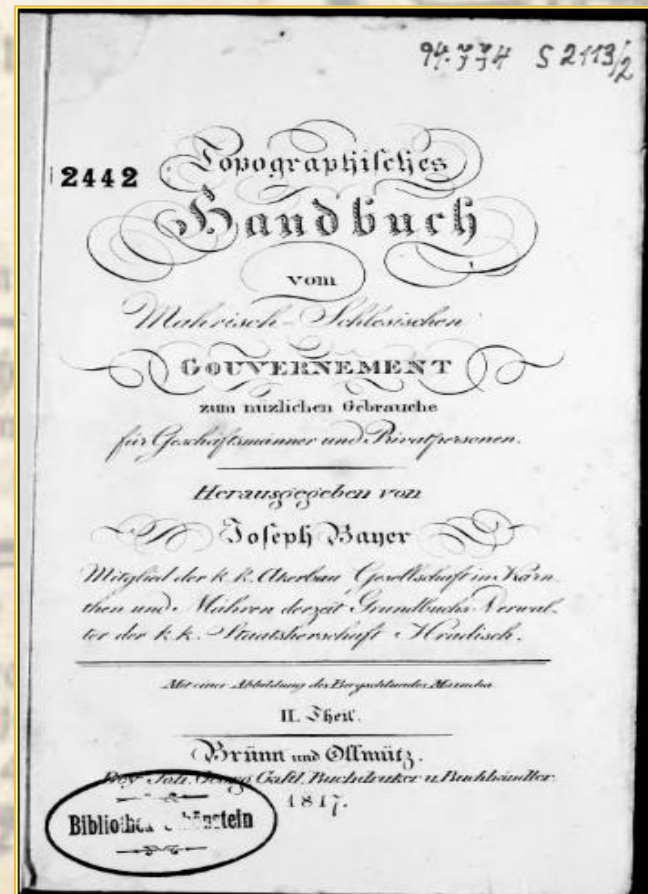 S 2113/2
2442
Topographisches
Handbuch
vom
Mahrisch-Schlesischen
GOUVERNEMENT
zum nuzlichen Gebrauche
für Geschäftsmänner und Privatpersonen.
Herausgegeben von
Joseph Bayer
Mitglied der k. k. Akerbau Gesellschaft in Kärn-
then und Mähren derzeit Grundbuchs Verwal-
ter der k. k. Staatsherschaft Hradisch.
Mit einer Abbildung des Bergschlundes Mazucha
II. Theil.
Brünn und Ollmütz.
Bey Joh. Georg Gastl, Buchdruker u. Buchhändler
1817.